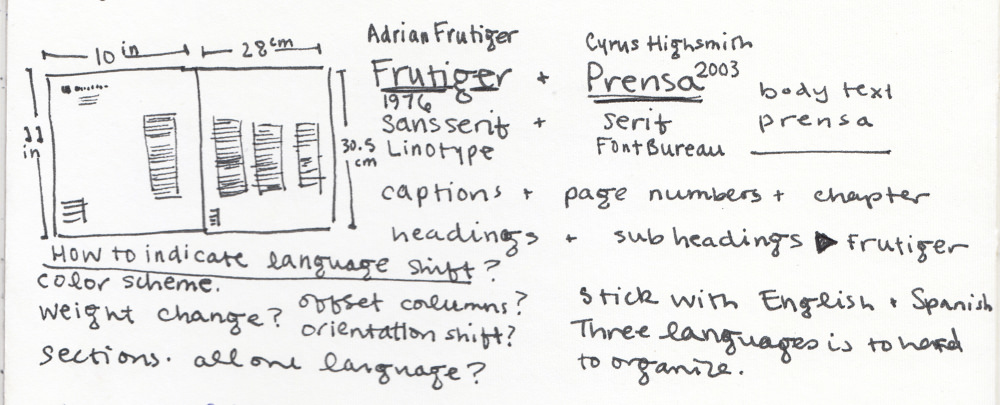 10 in
28 cm
11 in
30.5 cm
Adrian Frutiger
Frutiger +
1976
sans serif +
Linotype
Cyrus Highsmith
Prensa 2003
serif
Font Bureau
body text
prensa
captions + page numbers + chapter
headings + subheadings ▶ Frutiger
How to indicate language shift?
color scheme.
weight change? offset columns?
orientation shift?
sections. all one language?
Stick with English + Spanish
Three languages is to hard
to organize.